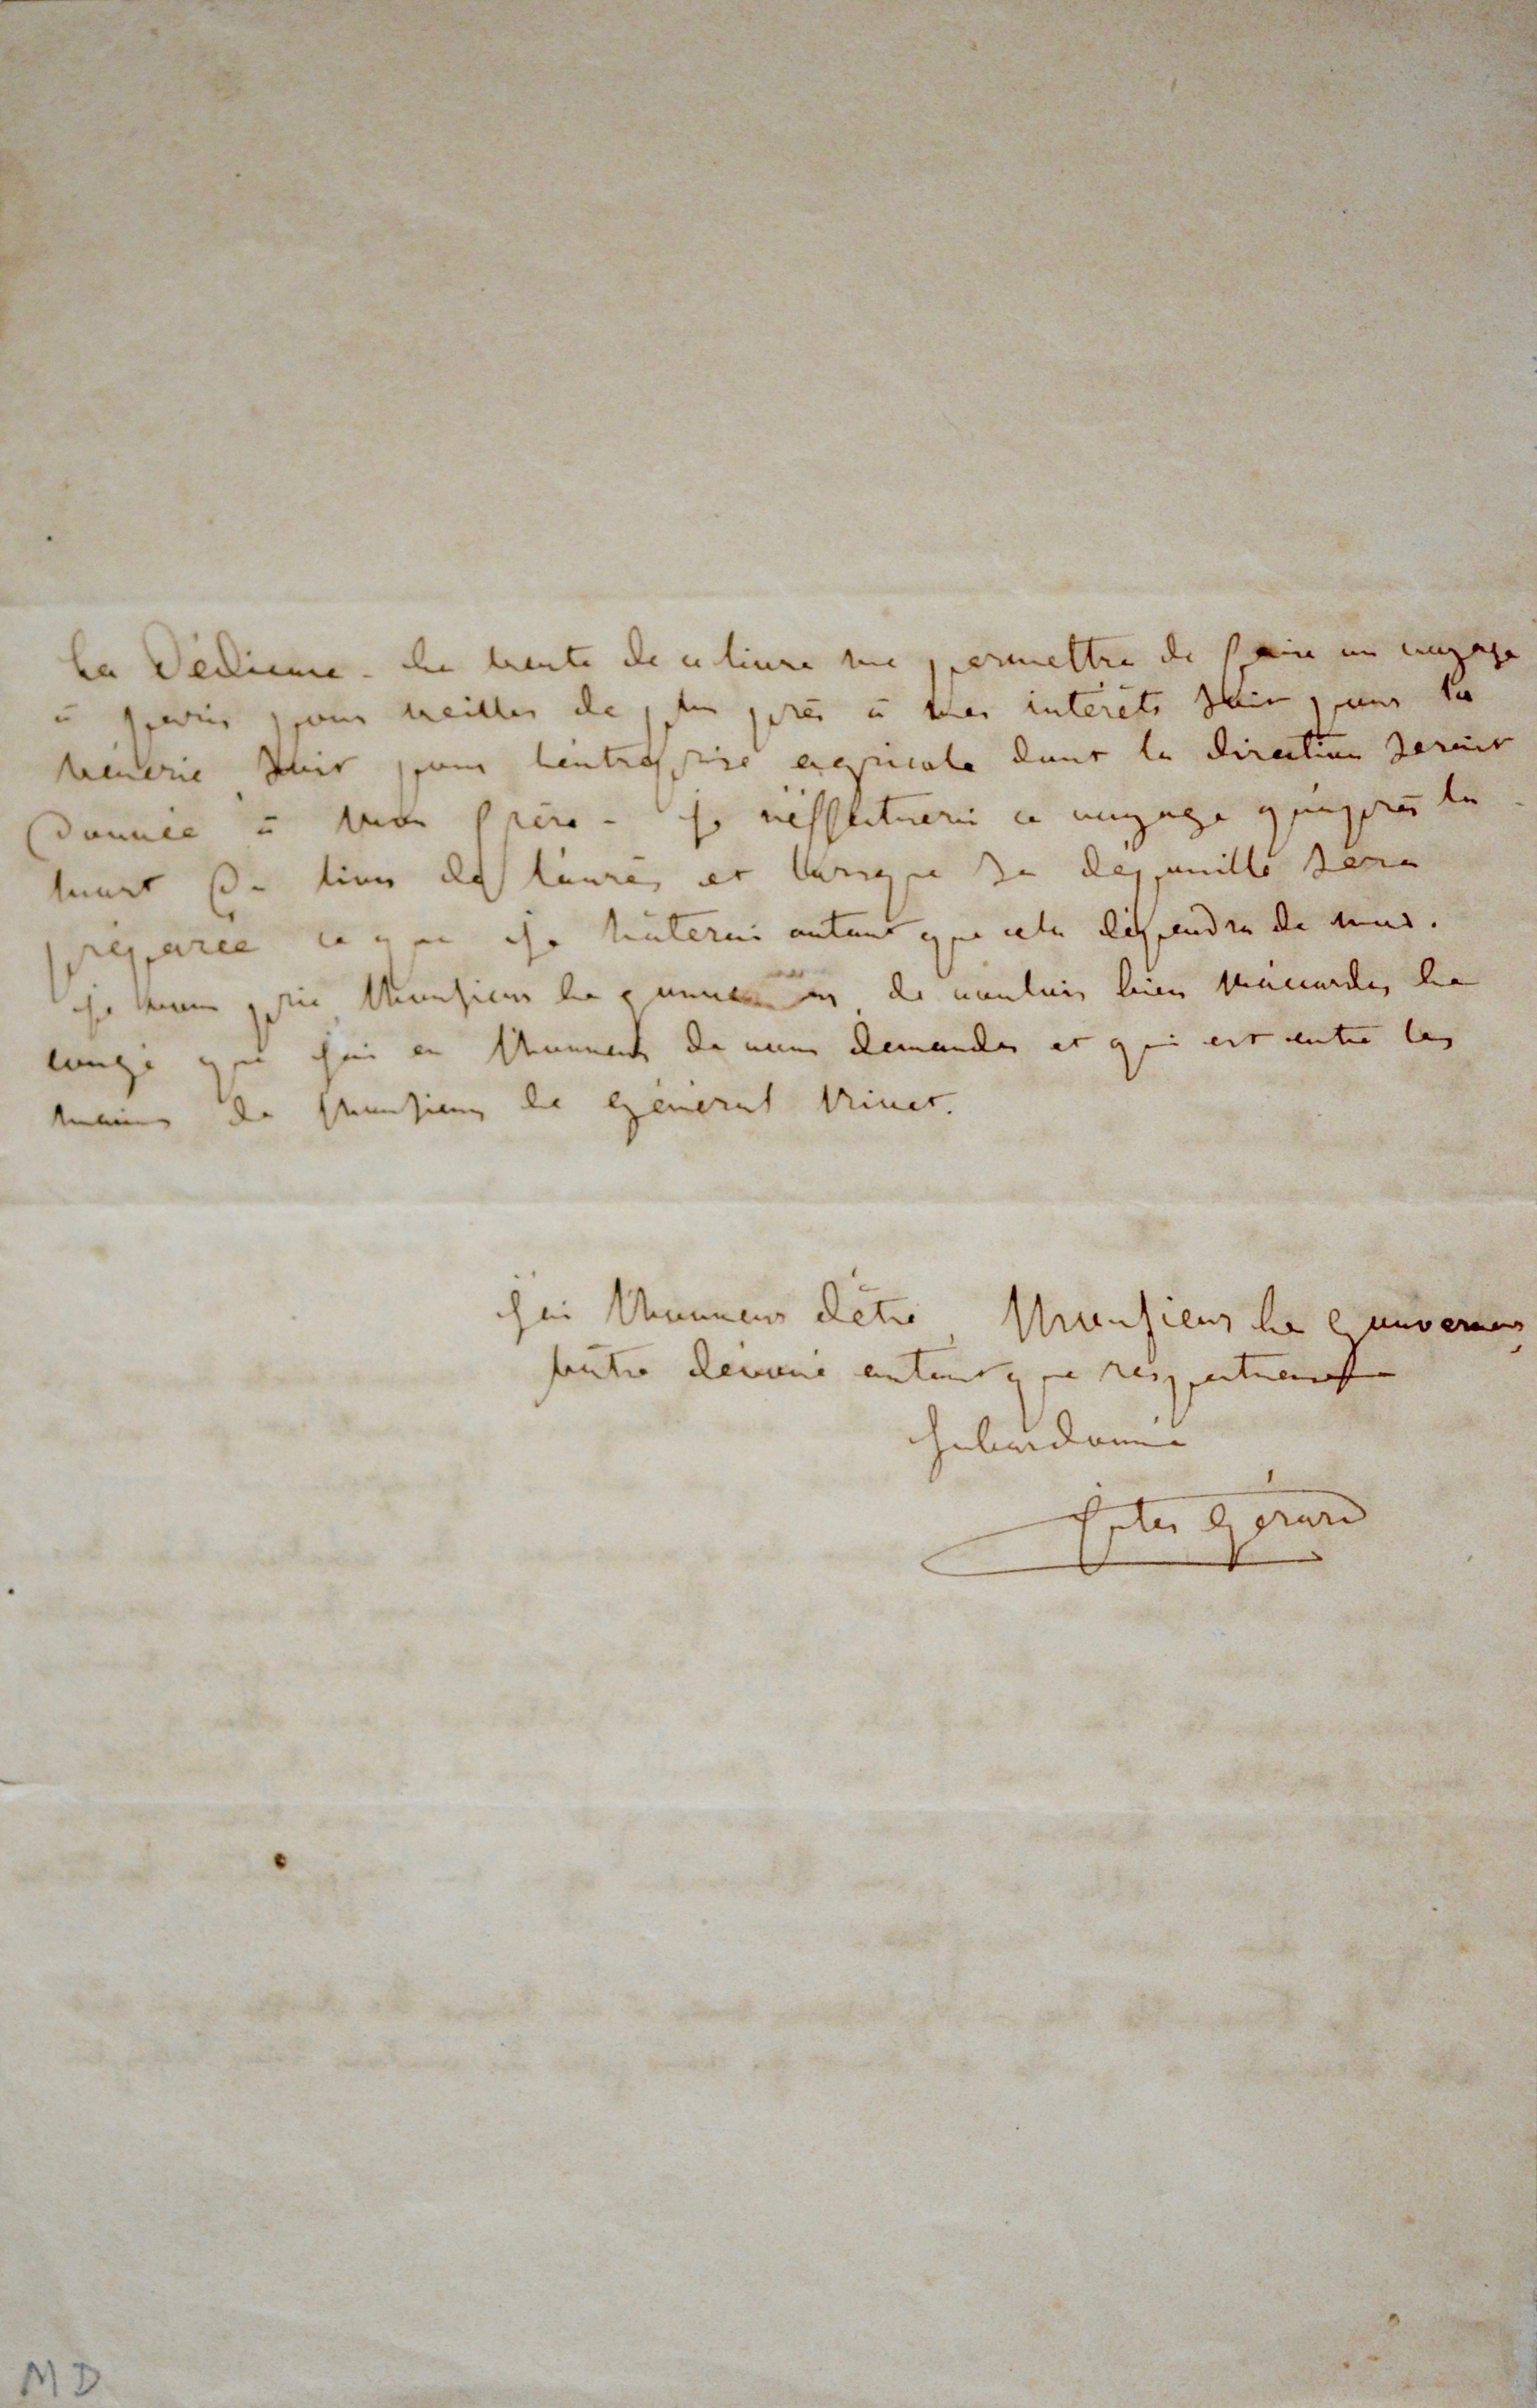 la Dédicace - la vente de ce livre me permettra de faire un voyage
à paris pour veiller de plus près à mes intérêts soit pour la
vénerie soit pour l'entreprise agricole dont la direction serait
donnée à mon frère - je n'effectuerai ce voyage qu'après la
mort du lion de l'aurès et lorsque sa dépouille sera
préparée ce que je hâterai autant que cela dépendra de moi.
je vous prie, Monsieur le gouverneur, de vouloir bien m'accorder le
congé que j'ai eu l'honneur de vous demander et qui est entre les
mains de Monsieur le général rivet.
j'ai l'honneur d'être, Monsieur le gouverneur,
votre dévoué autant que respectueux
subordonné
Jules Gérard
MD